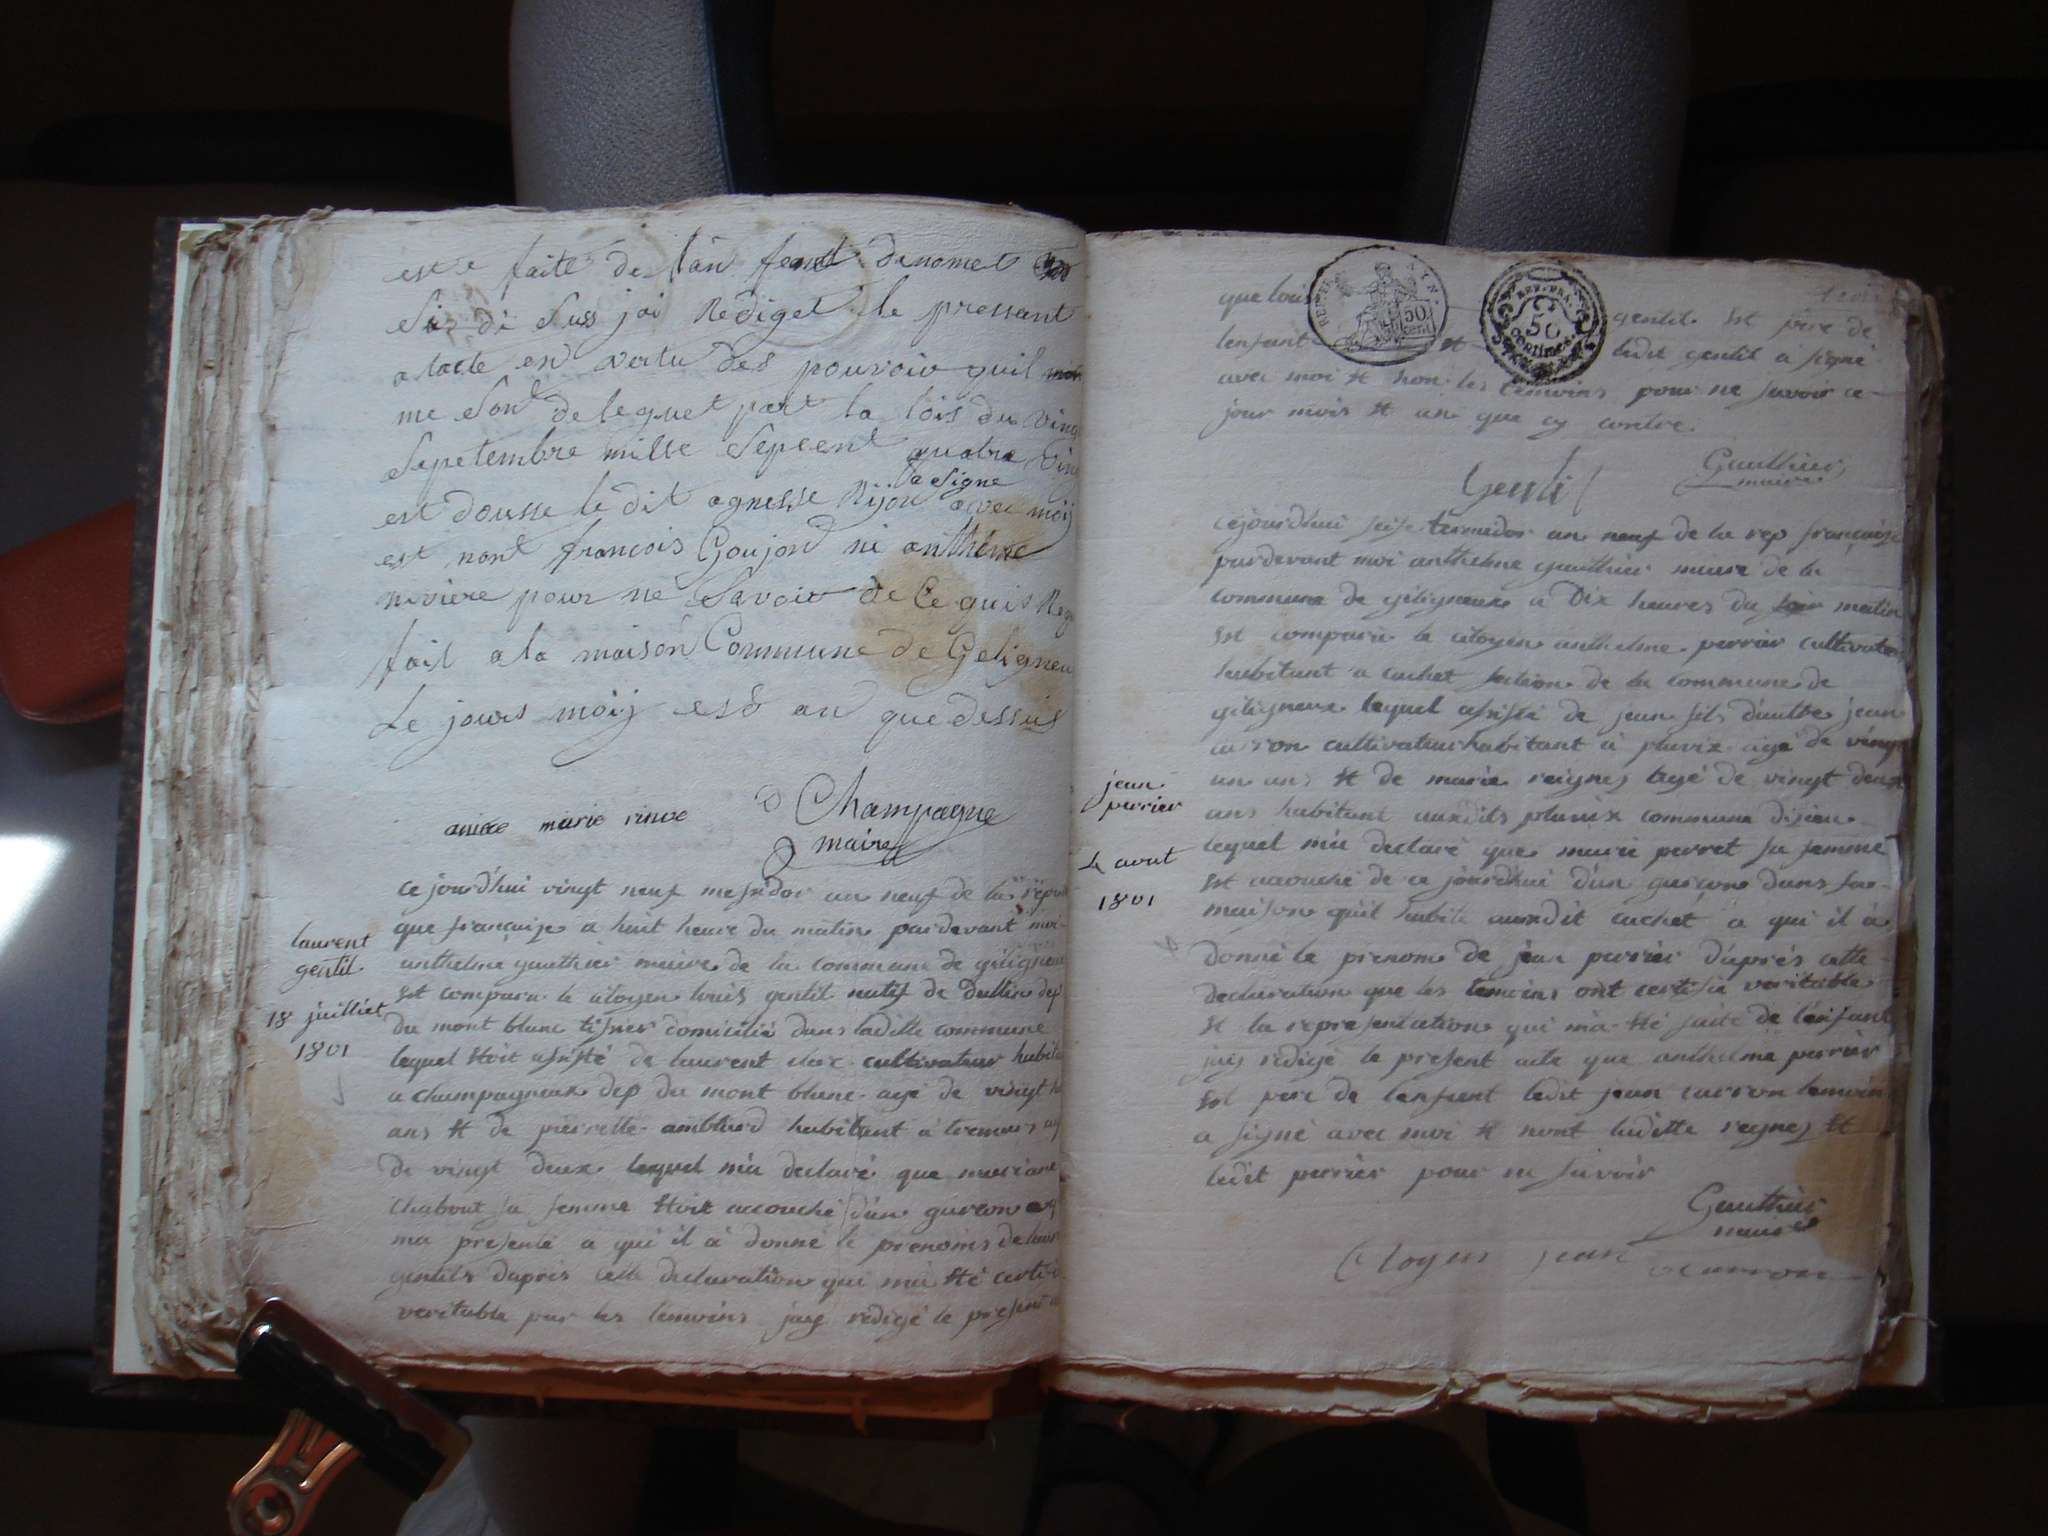 este faite de lan fent denomet
Sis de Suss jai Rediget le pressant
atacte en vertu des pouvoir quil
me sont deleguet part la lois du vingt
Sepetembre mille Sepcent quatre vin
a signe
est dousse le dit agnesse Rijou avec moij
est nont francois Goujond ni anthême
riviere pour ne Savoir de Ce quis Req
fait a la maison Commune de Geligneu
Le jours moij est an que dessus
marie rinve
Champagne
maire
ce jourd'hui vingt neuf mesidor an neuf de la repub
que française a huit heure du matin pardevant moi
anthelme gauthier maire de la commune de giligneu
est comparu le citoyen louis gentil natif de Dullin dep
du mont blanc tisser domicilié dans laditte commune
lequel etoit assisté de laurent clerc cultivateur habita
a champagneux dep du mont blanc agé de vingt h
ans et de pierrette amblard habitant à
de vingt deux lequel m'a declaré que mariane
chabout sa femme etoit accouché d'un garcon
ma presenté a qui il à donné le prenoms de laur
gentils dapres cette declaration qui ma eté certi
veritable par les temoins jay redigé le present a
laurent
gentil
18 juilliet
1801
que lois gentil est pere de
lenfant et ledit gentil a signé
avec moi et non les temoins pour ne savoir ce
jour mois et an que cy contre
Gauthier
maire
Gentil
cejourdhui seise termidor an neuf de la rep française
pardevant moi anthelme gauthier maire de la
commune de giligneux a Dix heures du soir matin
est comparu le citoyen anthelme perrier cultivateu
habitant a cuchet section de la commune de
giligneux lequel assisté de jean fils d'aultre jean
carron cultivateur habitant à pluvix agé de vingt
un ans et de marie reignes agé de vingt deux
ans habitant auxdits pluvix commune disieu
lequel m'a declaré que marie perret sa femme
est accouché de ce jourdhui d'un garçon dans sa
maison quil habite auxdit cuchet a qui il à
donné le prenom de jean perrier d'aprés cette
declaration que les temoins ont certifié veritable
et la representation qui m'a eté faite de l'enfant
jais redigé le present acte que anthelme perrier
est pere de l'enfant ledit jean carron temoin
a signé avec moi et nont laditte regnes et
ledit perrier pour ne savoir
Gauthier
maire
Cloyen jean
carron
jean
perrier
4 aout
1801
REP. FRA.
50
cent
REP. FRA.
50
centimes